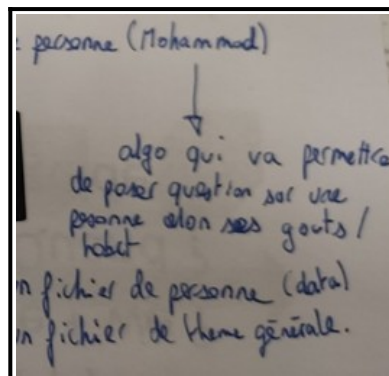 personne (Mohammad)
algo qui va permettre
de poser question sur une
personne selon ses gouts /
habit
n fichier de personne (data)
n fichier de theme générale.